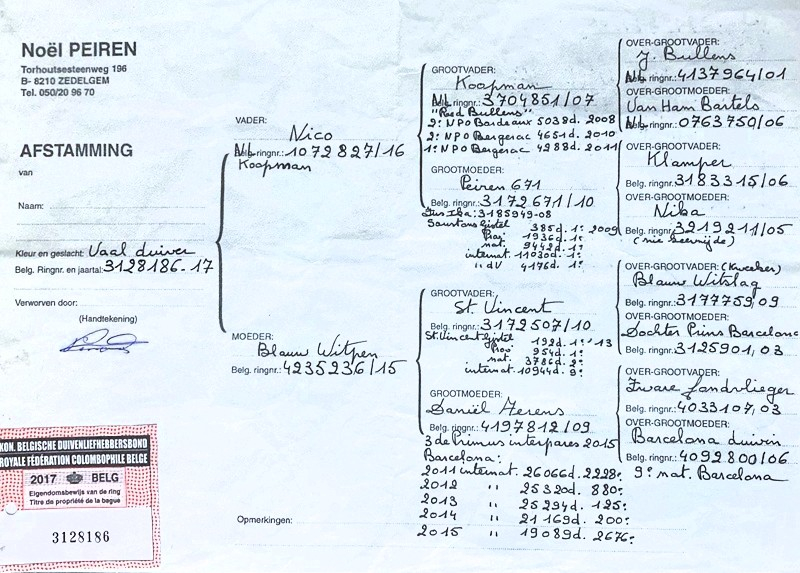 Noël PEIREN
Torhoutsesteenweg 196
B- 8210 ZEDELGEM
Tel. 050/20 96 70
AFSTAMMING
van
Naam:
Kleur en geslacht: Vaal duiver
Belg. Ringnr. en jaartal: 3128186-17
Verworven door:
(Handtekening)
KON. BELGISCHE DUIVENLIEFHEBBERSBOND
ROYALE FÉDÉRATION COLOMBOPHILE BELGE
2017 BELG
Eigendomsbewijs van de ring
Titre de propriété de la bague
3128186
VADER:
Nico
NL ringnr.: 1072827/16
Koopman
MOEDER:
Blauw Witpen
Belg. ringnr.: 4235236/15
Opmerkingen:
GROOTVADER:
Koopman
NL ringnr.: 3704851/07
"Red Bullens"
2e NPO Bordeaux 5038d. 2008
2e NPO Bergerac 4651d. 2010
1e NPO Bergerac 4288d. 2011
GROOTMOEDER:
Peiren 671
Belg. ringnr.: 3172671/10
Zus Iba: 3185949-08
385d. 1e 2009
Prov 1936d. 1e
nat. 9442d. 1e
internat. 11030d. 1e
" dV 4176d. 1e
GROOTVADER:
St. Vincent
Belg. ringnr.: 3172507/10
St. Vincent 192d. 1e '13
Prov 954d. 1e
nat. 3786d. 2e
internat. 10944d. 9e
GROOTMOEDER:
Daniël Aerens
Belg. ringnr.: 4197812/09
3de Primus interpares 2015
Barcelona:
2011 internat. 26066d. 2228e
2012 " 25320d. 880e
2013 " 25294d. 125e
2014 " 21169d. 200e
2015 " 19089d. 2676e
OVER-GROOTVADER:
J. Bullens
NL ringnr.: 4137964/01
OVER-GROOTMOEDER:
Van Ham Bartels
NL ringnr.: 0763750/06
OVER-GROOTVADER:
Klamper
Belg. ringnr.: 3183315/06
OVER-GROOTMOEDER:
Nika
Belg. ringnr.: 3219211/05
OVER-GROOTVADER: (Kweker)
Blauw Witslag
Belg. ringnr.: 3177759,09
OVER-GROOTMOEDER:
Dochter Prins Barcelona
Belg. ringnr.: 3125901,03
OVER-GROOTVADER:
Zware Fondvlieger
Belg. ringnr.: 4033107,03
OVER-GROOTMOEDER:
Barcelona duivin
Belg. ringnr.: 4092800/06
9e nat. Barcelona